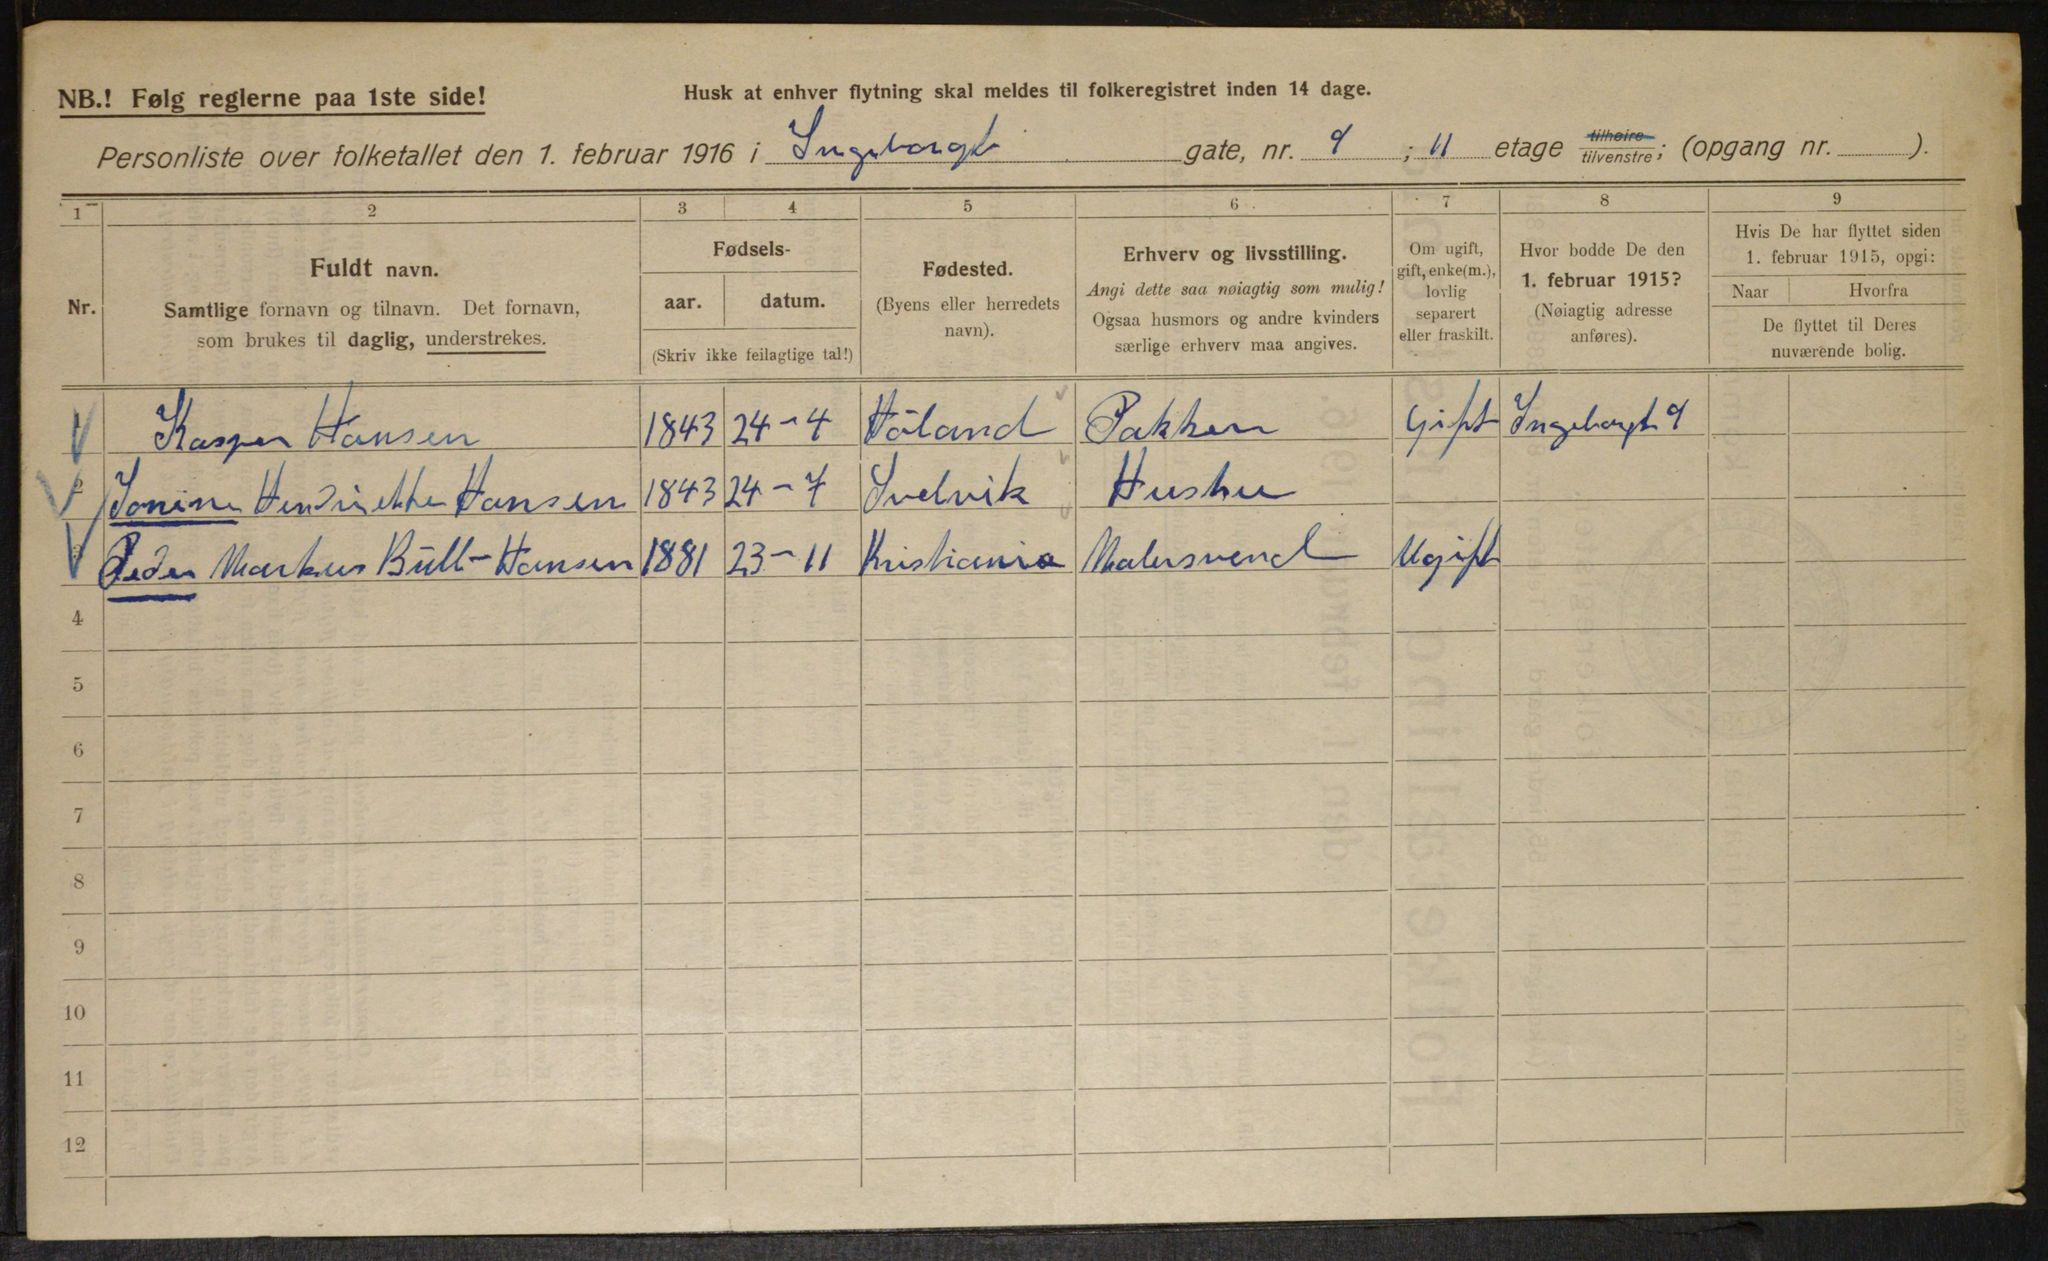 NB.! Følg reglerne paa 1ste side!
Husk at enhver flytning skal meldes til folkeregistret inden 14 dage.
Personliste over folketallet den 1. februar 1916 i Ingeborgt gate, nr. 9 ; 11 etage tilhøire/tilvenstre; (opgang nr. ).
1 2 3 4 5 6 7 8 9
Nr.
Fuldt navn.
Samtlige fornavn og tilnavn. Det fornavn,
som brukes til daglig, understrekes.
Fødsels-
aar. datum.
(Skriv ikke feilagtige tal!)
Fødested.
(Byens eller herredets
navn).
Erhverv og livsstilling.
Angi dette saa nøiagtig som mulig!
Ogsaa husmors og andre kvinders
særlige erhverv maa angives.
Om ugift,
gift, enke(m.),
lovlig
separert
eller fraskilt.
Hvor bodde De den
1. februar 1915?
(Nøiagtig adresse
anføres).
Hvis De har flyttet siden
1. februar 1915, opgi:
Naar Hvorfra
De flyttet til Deres
nuværende bolig.
1 Kasper Hansen 1843 24-4 Höland Pakker Gift Ingeborgt 9
2 Jonine Hendrikke Hansen 1843 24-7 Svelvik Hustru
3 Peder Markus Bull-Hansen 1881 23-11 Kristiania Malersvend Ugift
4
5
6
7
8
9
10
11
12